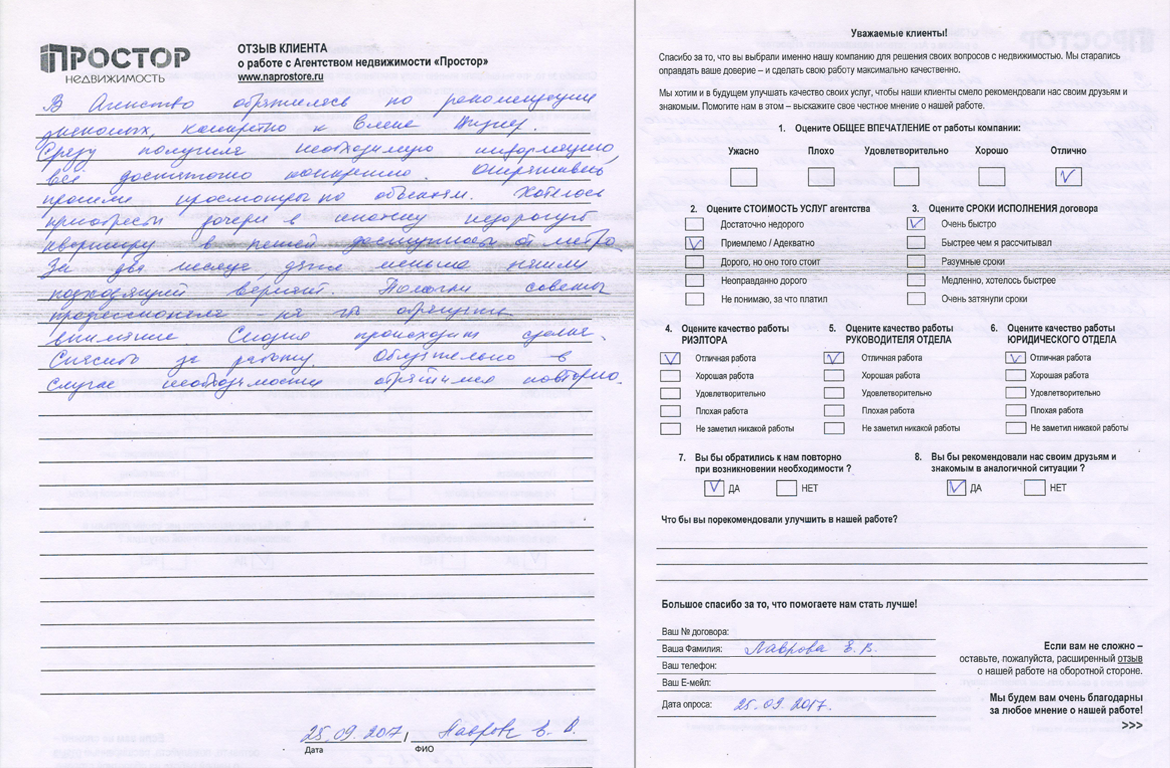 ПРОСТОР
НЕДВИЖИМОСТЬ
ОТЗЫВ КЛИЕНТА
о работе с Агентством недвижимости «Простор»
www.naprostore.ru
В Агенство обратилась по рекомендации
знакомых, конкретно к Елене
Сразу получила необходимую информацию,
всё достаточно конкретно. Оперативно
прошли просмотры по объектам. Хотелось
приобрести дочери в ипотеку недорогую
квартиру в пешей доступности от метро.
За два месяца даже меньше нашли
подходящий вариант. Помогли советы
профессионала - на что обратить
внимание. Сегодня происходит сделка.
Спасибо за работу. Обязательно в
случае необходимости обратимся повторно.
25.09.2017 / Лаврова Е. В.
Дата ФИО
Уважаемые клиенты!
Спасибо за то, что вы выбрали именно нашу компанию для решения своих вопросов с недвижимостью. Мы старались
оправдать ваше доверие – и сделать свою работу максимально качественно.
Мы хотим и в будущем улучшать качество своих услуг, чтобы наши клиенты смело рекомендовали нас своим друзьям и
знакомым. Помогите нам в этом – выскажите свое честное мнение о нашей работе.
1. Оцените ОБЩЕЕ ВПЕЧАТЛЕНИЕ от работы компании:
Ужасно Плохо Удовлетворительно Хорошо Отлично
2. Оцените СТОИМОСТЬ УСЛУГ агентства
Достаточно недорого
Приемлемо / Адекватно
Дорого, но оно того стоит
Неоправданно дорого
Не понимаю, за что платил
3. Оцените СРОКИ ИСПОЛНЕНИЯ договора
Очень быстро
Быстрее чем я рассчитывал
Разумные сроки
Медленно, хотелось быстрее
Очень затянули сроки
4. Оцените качество работы
РИЭЛТОРА
Отличная работа
Хорошая работа
Удовлетворительно
Плохая работа
Не заметил никакой работы
5. Оцените качество работы
РУКОВОДИТЕЛЯ ОТДЕЛА
Отличная работа
Хорошая работа
Удовлетворительно
Плохая работа
Не заметил никакой работы
6. Оцените качество работы
ЮРИДИЧЕСКОГО ОТДЕЛА
Отличная работа
Хорошая работа
Удовлетворительно
Плохая работа
Не заметил никакой работы
7. Вы бы обратились к нам повторно
при возникновении необходимости ?
ДА НЕТ
8. Вы бы рекомендовали нас своим друзьям и
знакомым в аналогичной ситуации ?
ДА НЕТ
Что бы вы порекомендовали улучшить в нашей работе?
Большое спасибо за то, что помогаете нам стать лучше!
Ваш № договора:
Ваша Фамилия: Лаврова Е. В.
Ваш телефон:
Ваш Е-мейл:
Дата опроса: 25.09.2017.
Если вам не сложно –
оставьте, пожалуйста, расширенный отзыв
о нашей работе на оборотной стороне.
Мы будем вам очень благодарны
за любое мнение о нашей работе!
>>>